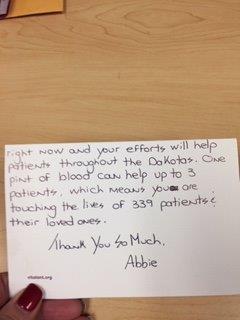 right now and your efforts will help
patients throughout the Dakotas. One
pint of blood can help up to 3
patients, which means you are
touching the lives of 339 patients &
their loved ones.
Thank You So Much,
Abbie
vitalant.org